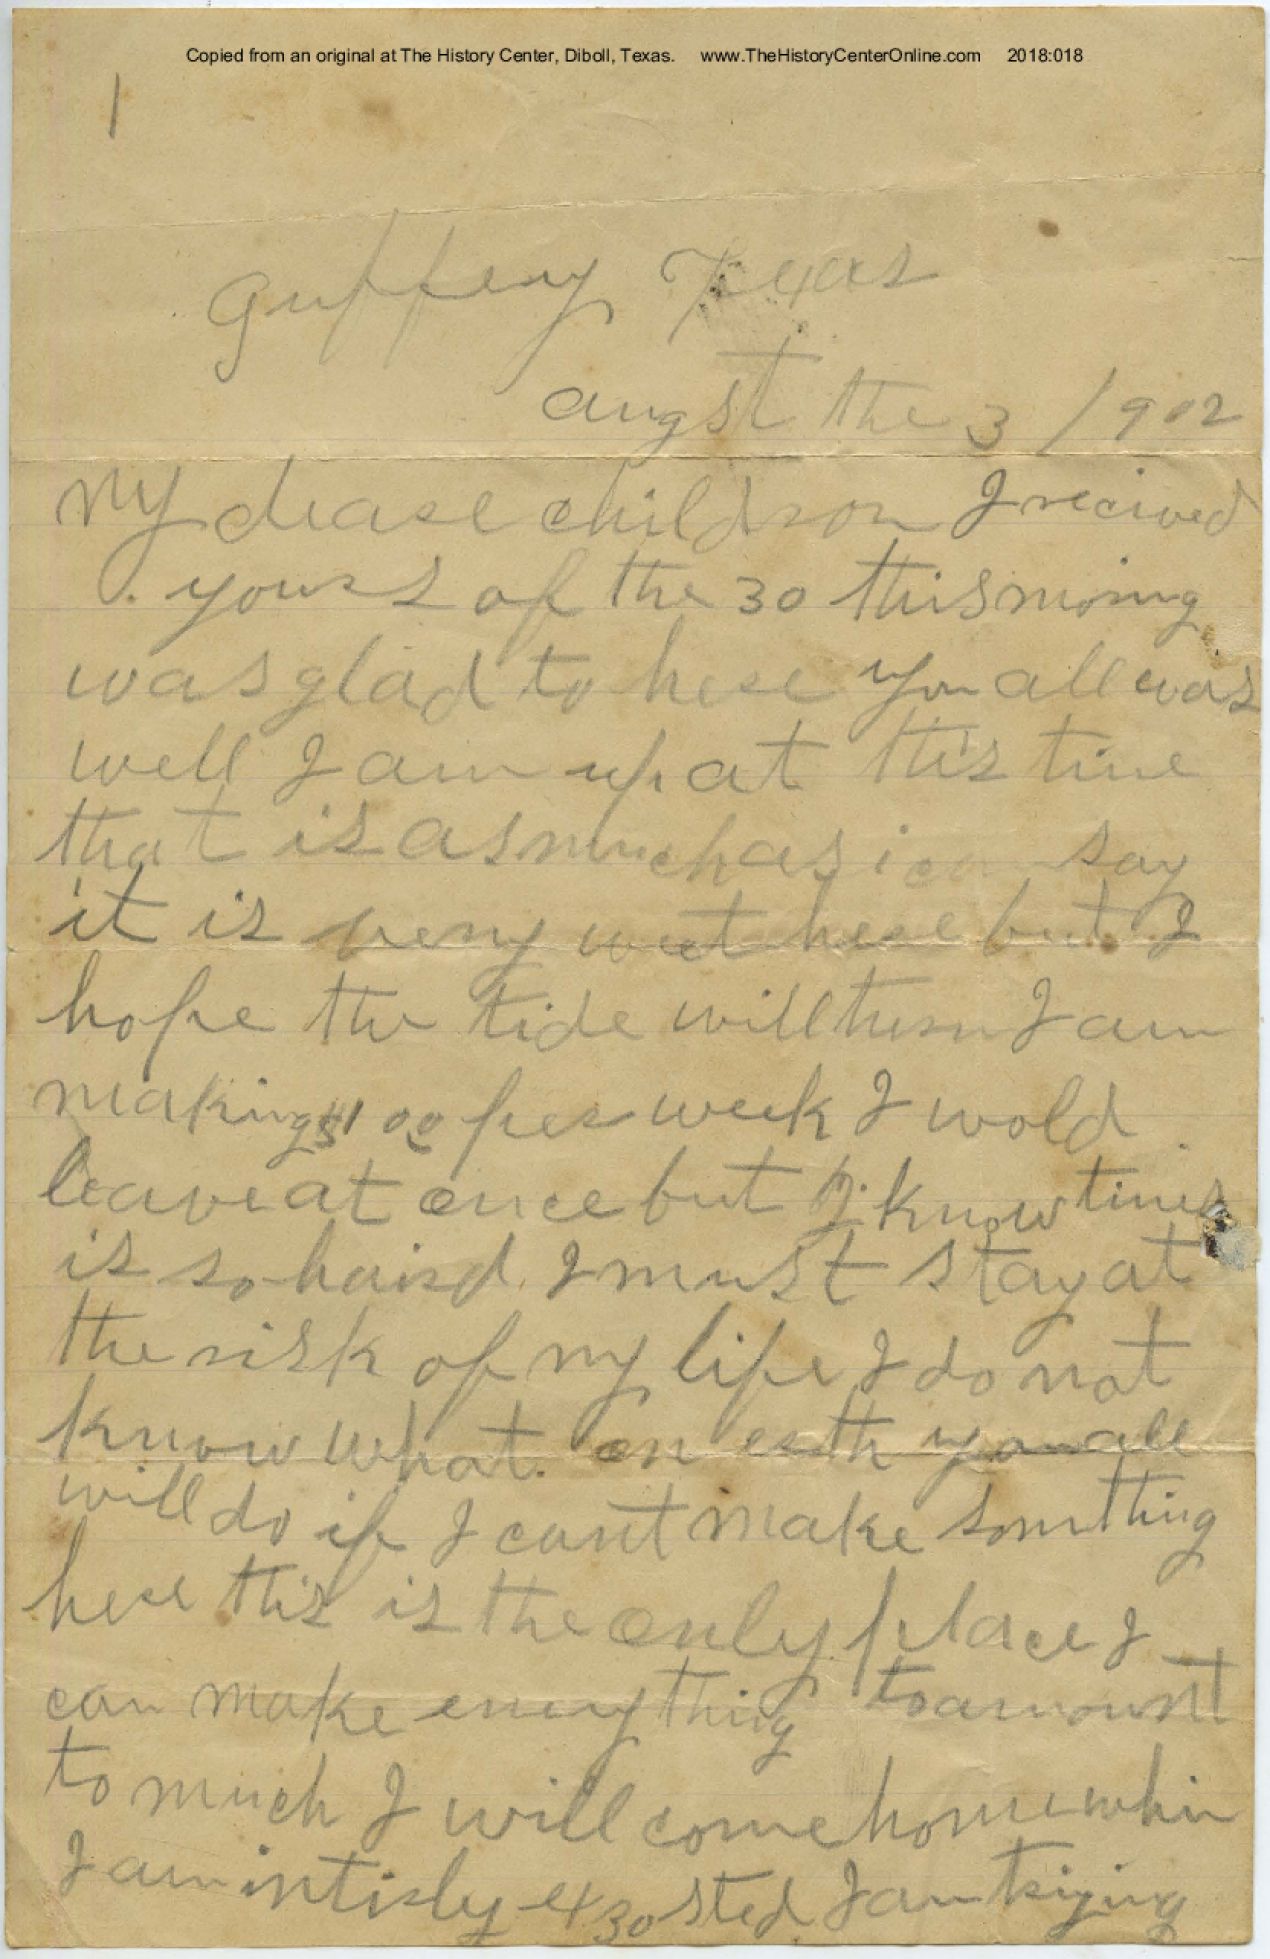 Copied from an original at The History Center, Diboll, Texas. www.TheHistoryCenterOnline.com 2018:018
1
Guffey Texas
augst the 3 / 902
my dease childron I recived
yours of the 30 this moring
was glad to here you all was
well I am up at this time
that is as much as i can say
it is very wet here but I
hope the tide will turn I am
making $1 00 per week I wold
leave at once but I know times
is so haird I must stay at
the risk of my life I do not
know what on erth you all
will do if I cant make somthing
here this is the only place I
can make enny thing to amount
to much I will come home whin
I am intirly exosted I am trying